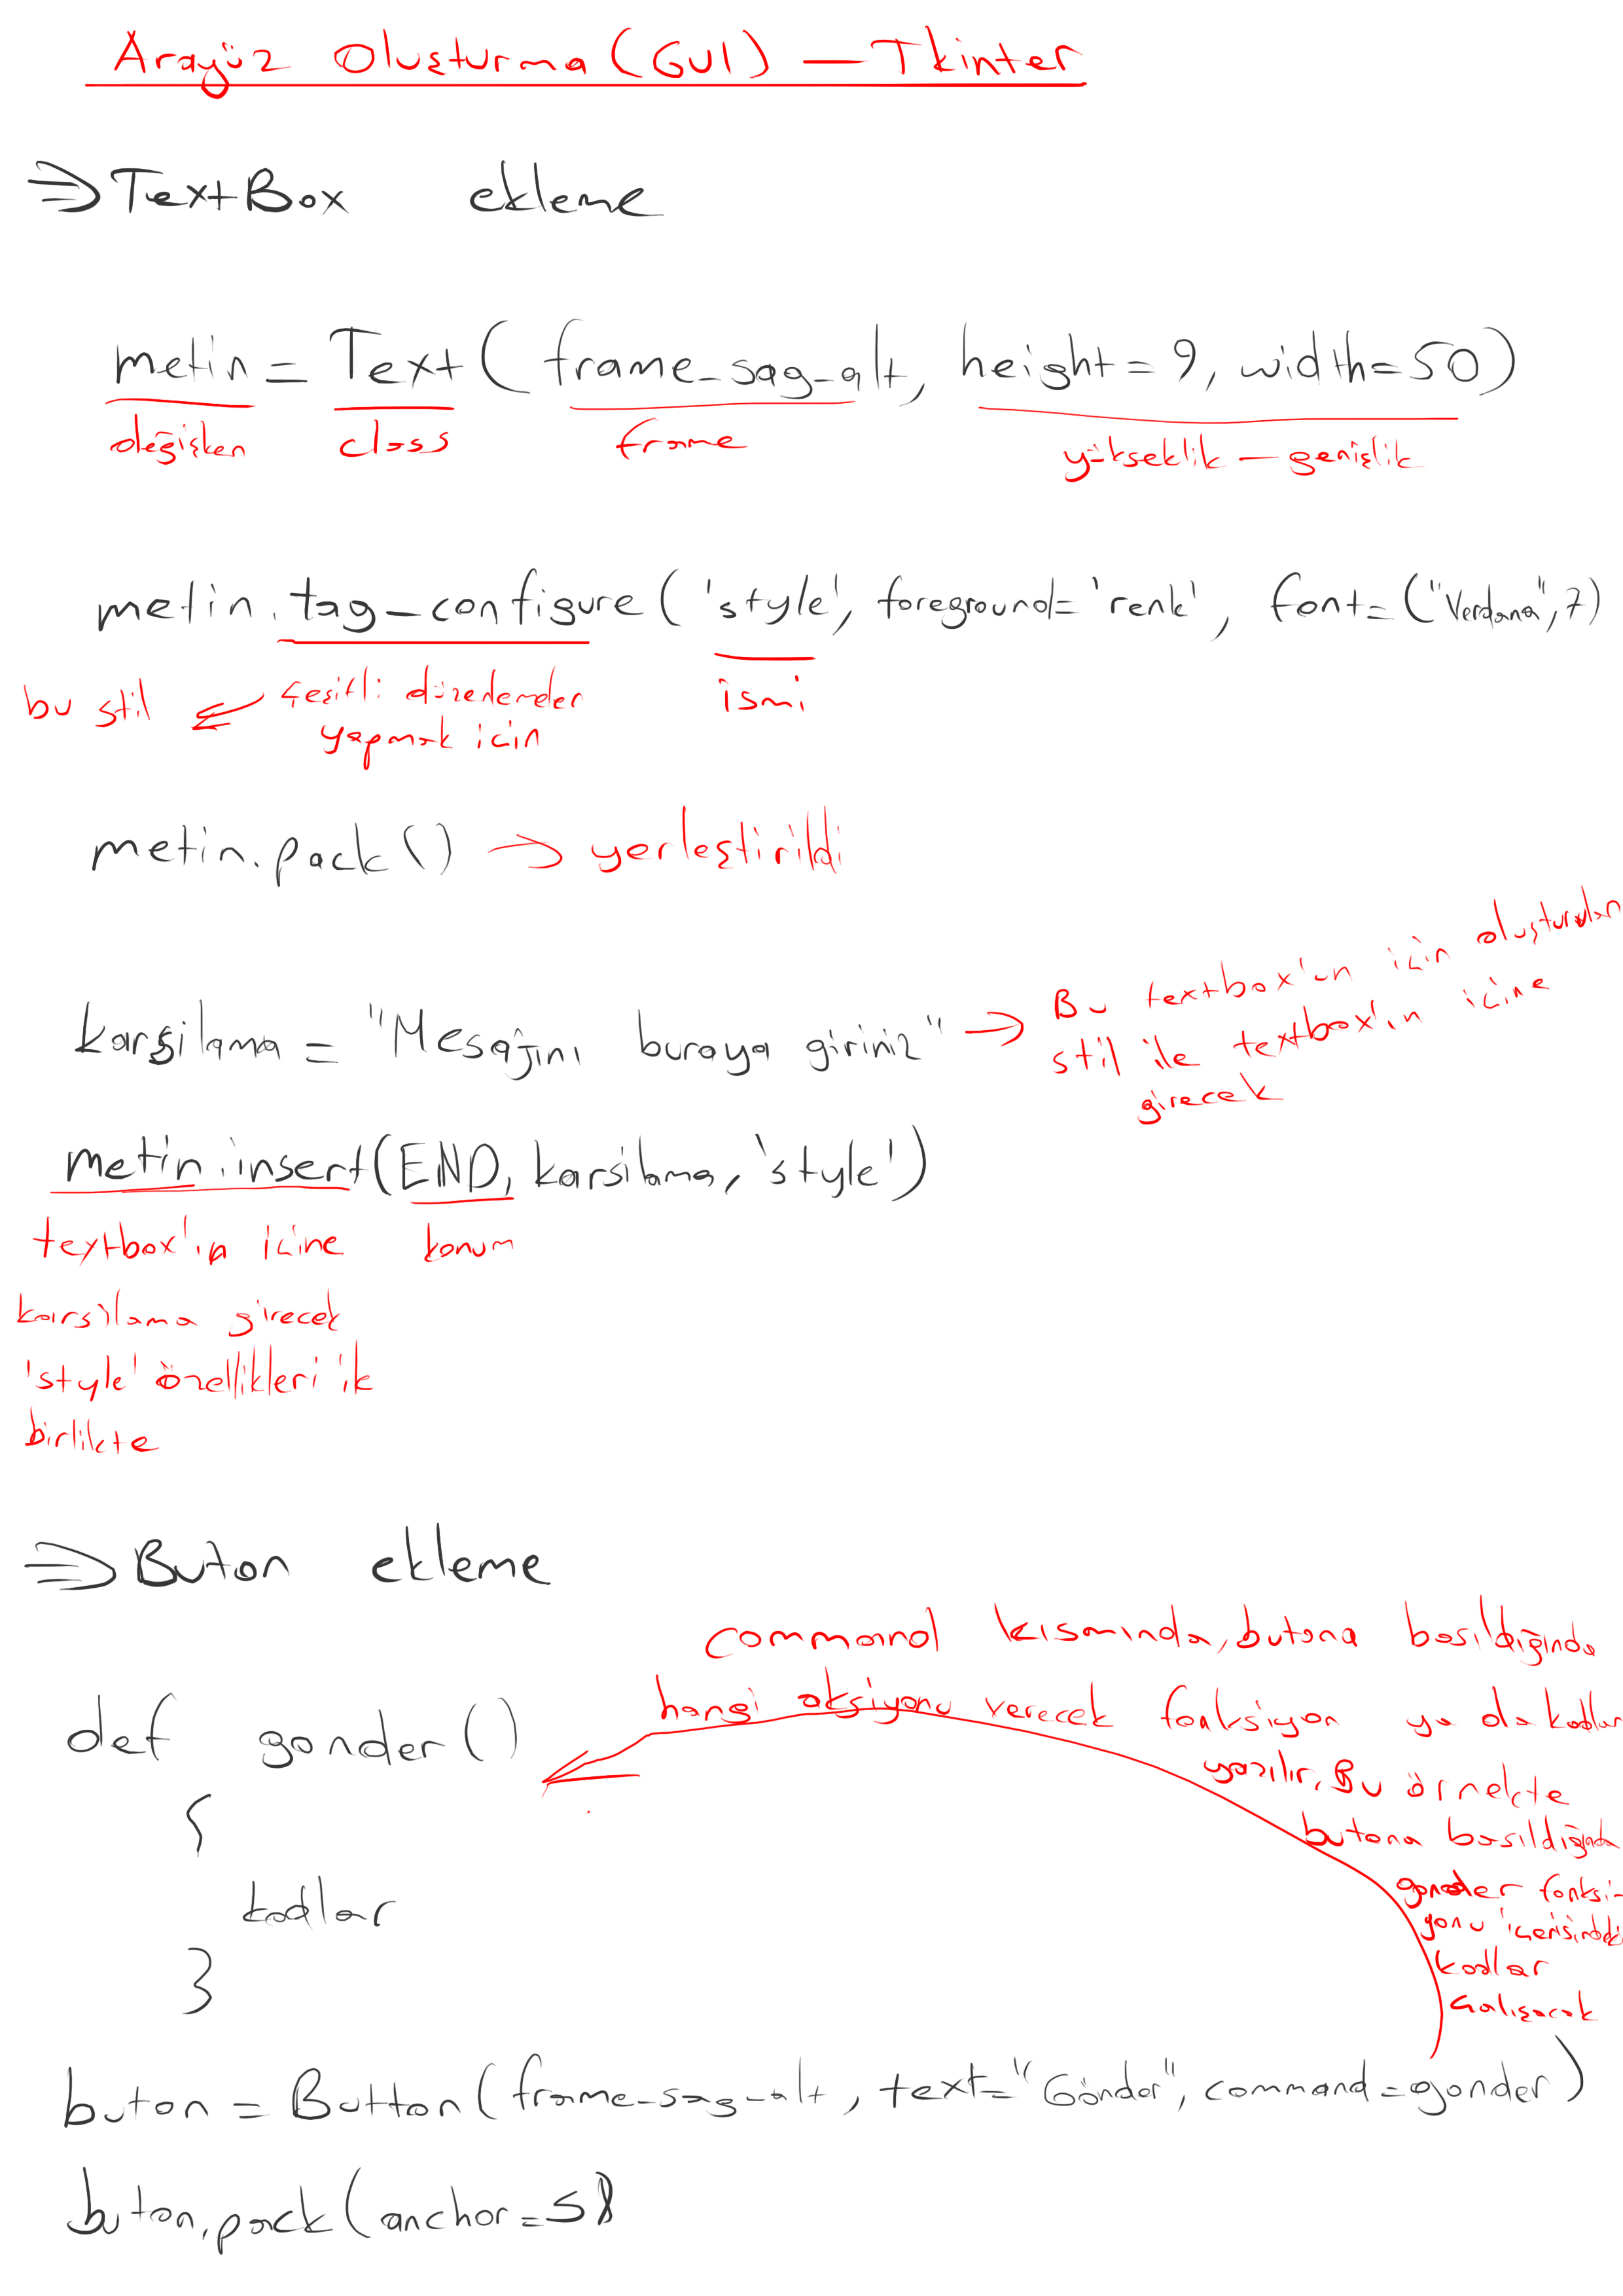 Arayüz Oluşturma (GUI) — Tkinter
⇒ TextBox ekleme
metin = Text ( frame_sag_alt, height = 9, width=50)
değişken class frame yükseklik — genişlik
metin.tag_configure ( 'style', foreground= 'renk', font= ("Verdana", 7)
bu stil ⇐ çeşitli düzenlemeler ismi
yapmak için
metin.pack () → yerleştirildi
karşilama = "Mesajını buraya giriniz" → Bu textbox'un için oluşturulan
stil ile textbox'ın içine
girecek
metin.insert(END, karsilama, 'style')
textbox'ın içine konum
karsilama girecek
'style' özellikleri ile
birlikte
⇒ Buton ekleme
command kısmında, butona basıldığında
hangi aksiyonu verecek fonksiyon ya da kodlar
yazılır. Bu örnekte
butona basıldığında
gonder fonksi-
yonu içerisindeki
kodlar
çalışacak
def gonder ()
{
kodlar
}
buton = Button ( frame_sag_alt, text= "Gönder", command = gonder )
buton.pack (anchor = S)